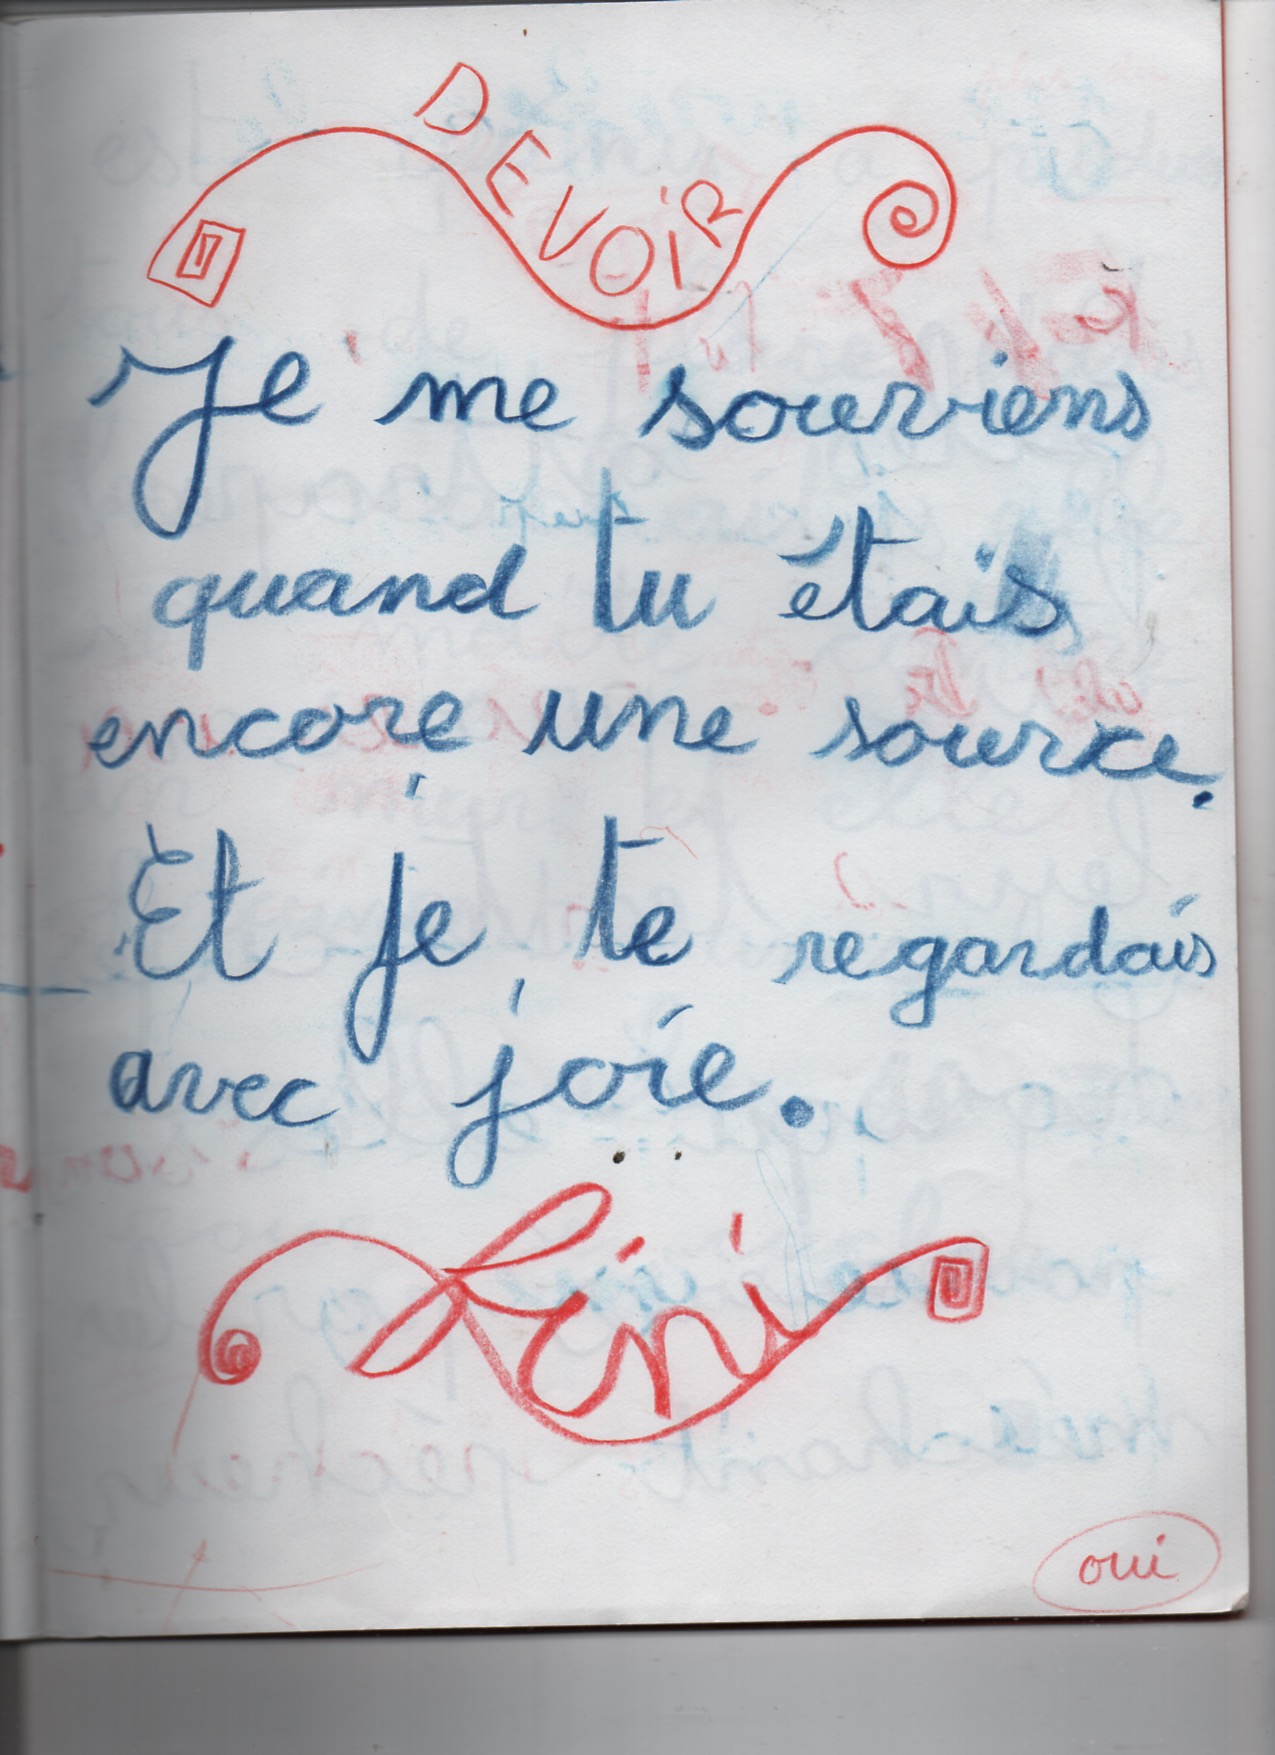 DEVOIR
Je me souviens
quand tu étais
encore une source.
Et je te regardais
avec joie.
Léni
oui